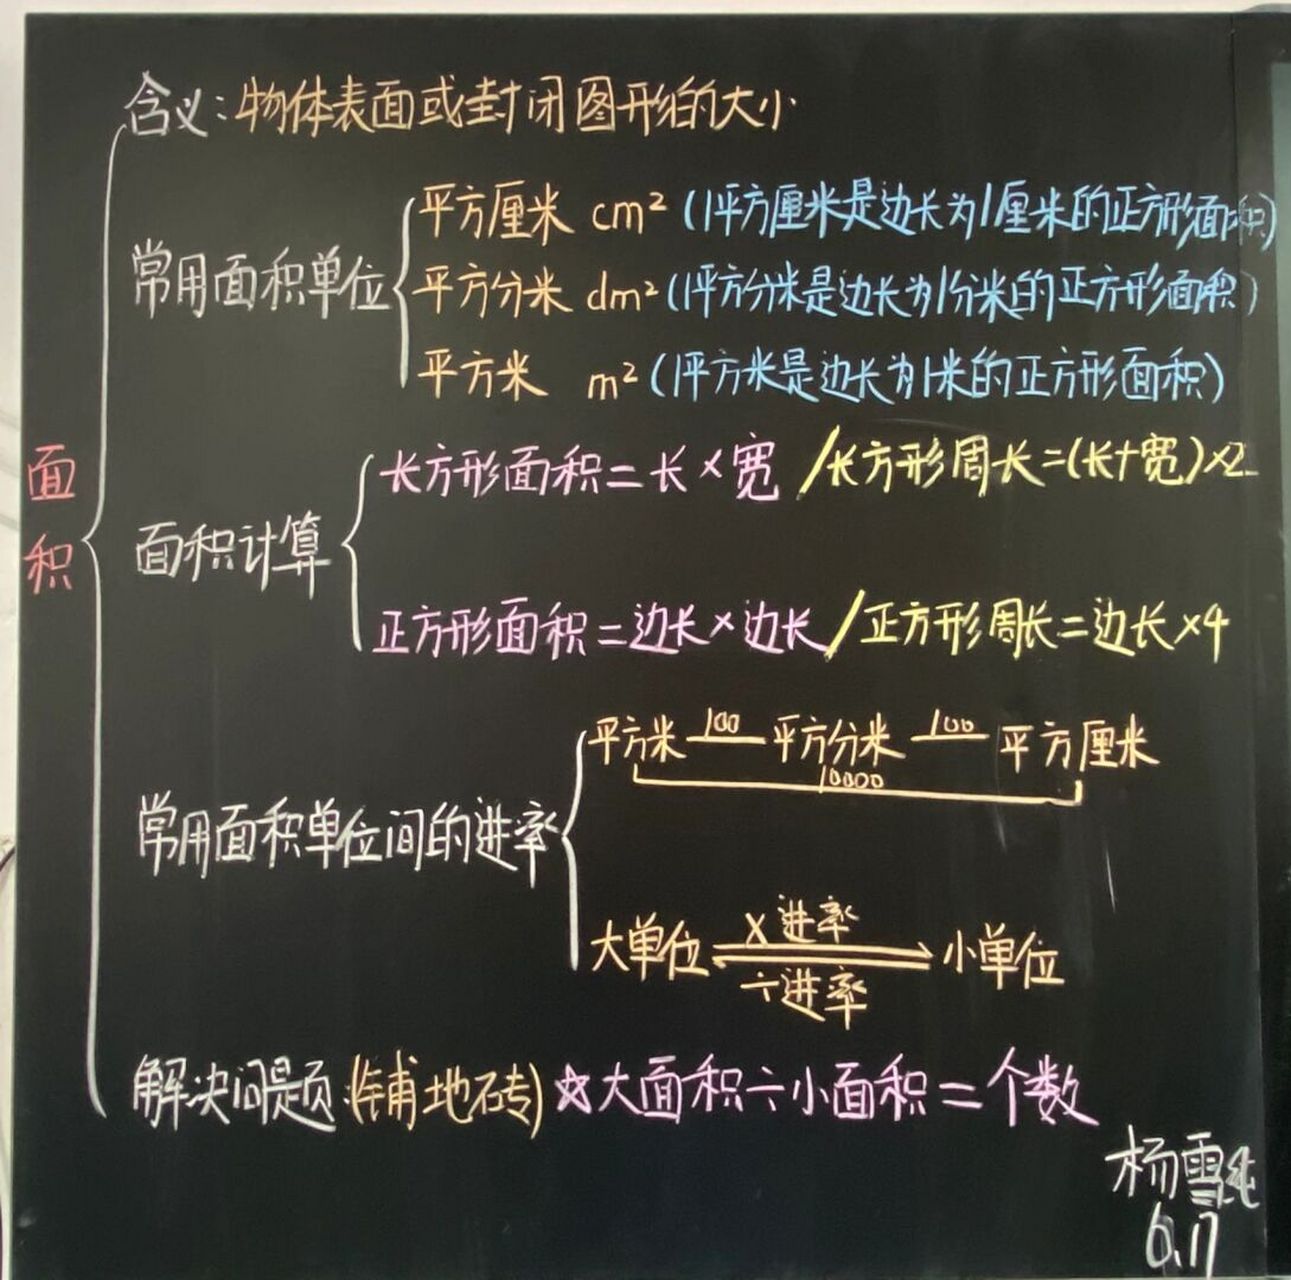 面积
含义：物体表面或封闭图形的大小
常用面积单位
平方厘米 cm² (1平方厘米是边长为1厘米的正方形面积)
平方分米 dm² (1平方分米是边长为1分米的正方形面积)
平方米 m² (1平方米是边长为1米的正方形面积)
面积计算
长方形面积=长×宽 /长方形周长=(长+宽)×2
正方形面积=边长×边长/正方形周长=边长×4
常用面积单位间的进率
平方米 100 平方分米 100 平方厘米
10000
×进率
大单位 小单位
÷进率
解决问题:(铺地砖)☆大面积÷小面积=个数
杨雪纯
6.17